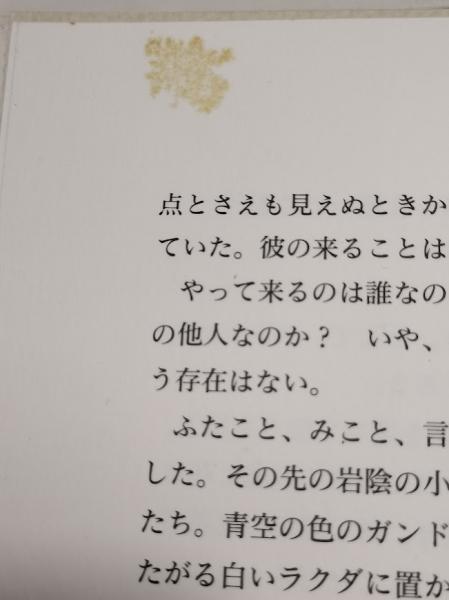 点とさえも見えぬときか
ていた。彼の来ることは
やって来るのは誰なの
の他人なのか？　いや、
う存在はない。
ふたこと、みこと、言
した。その先の岩陰の小
たち。青空の色のガンド
たがる白いラクダに置か